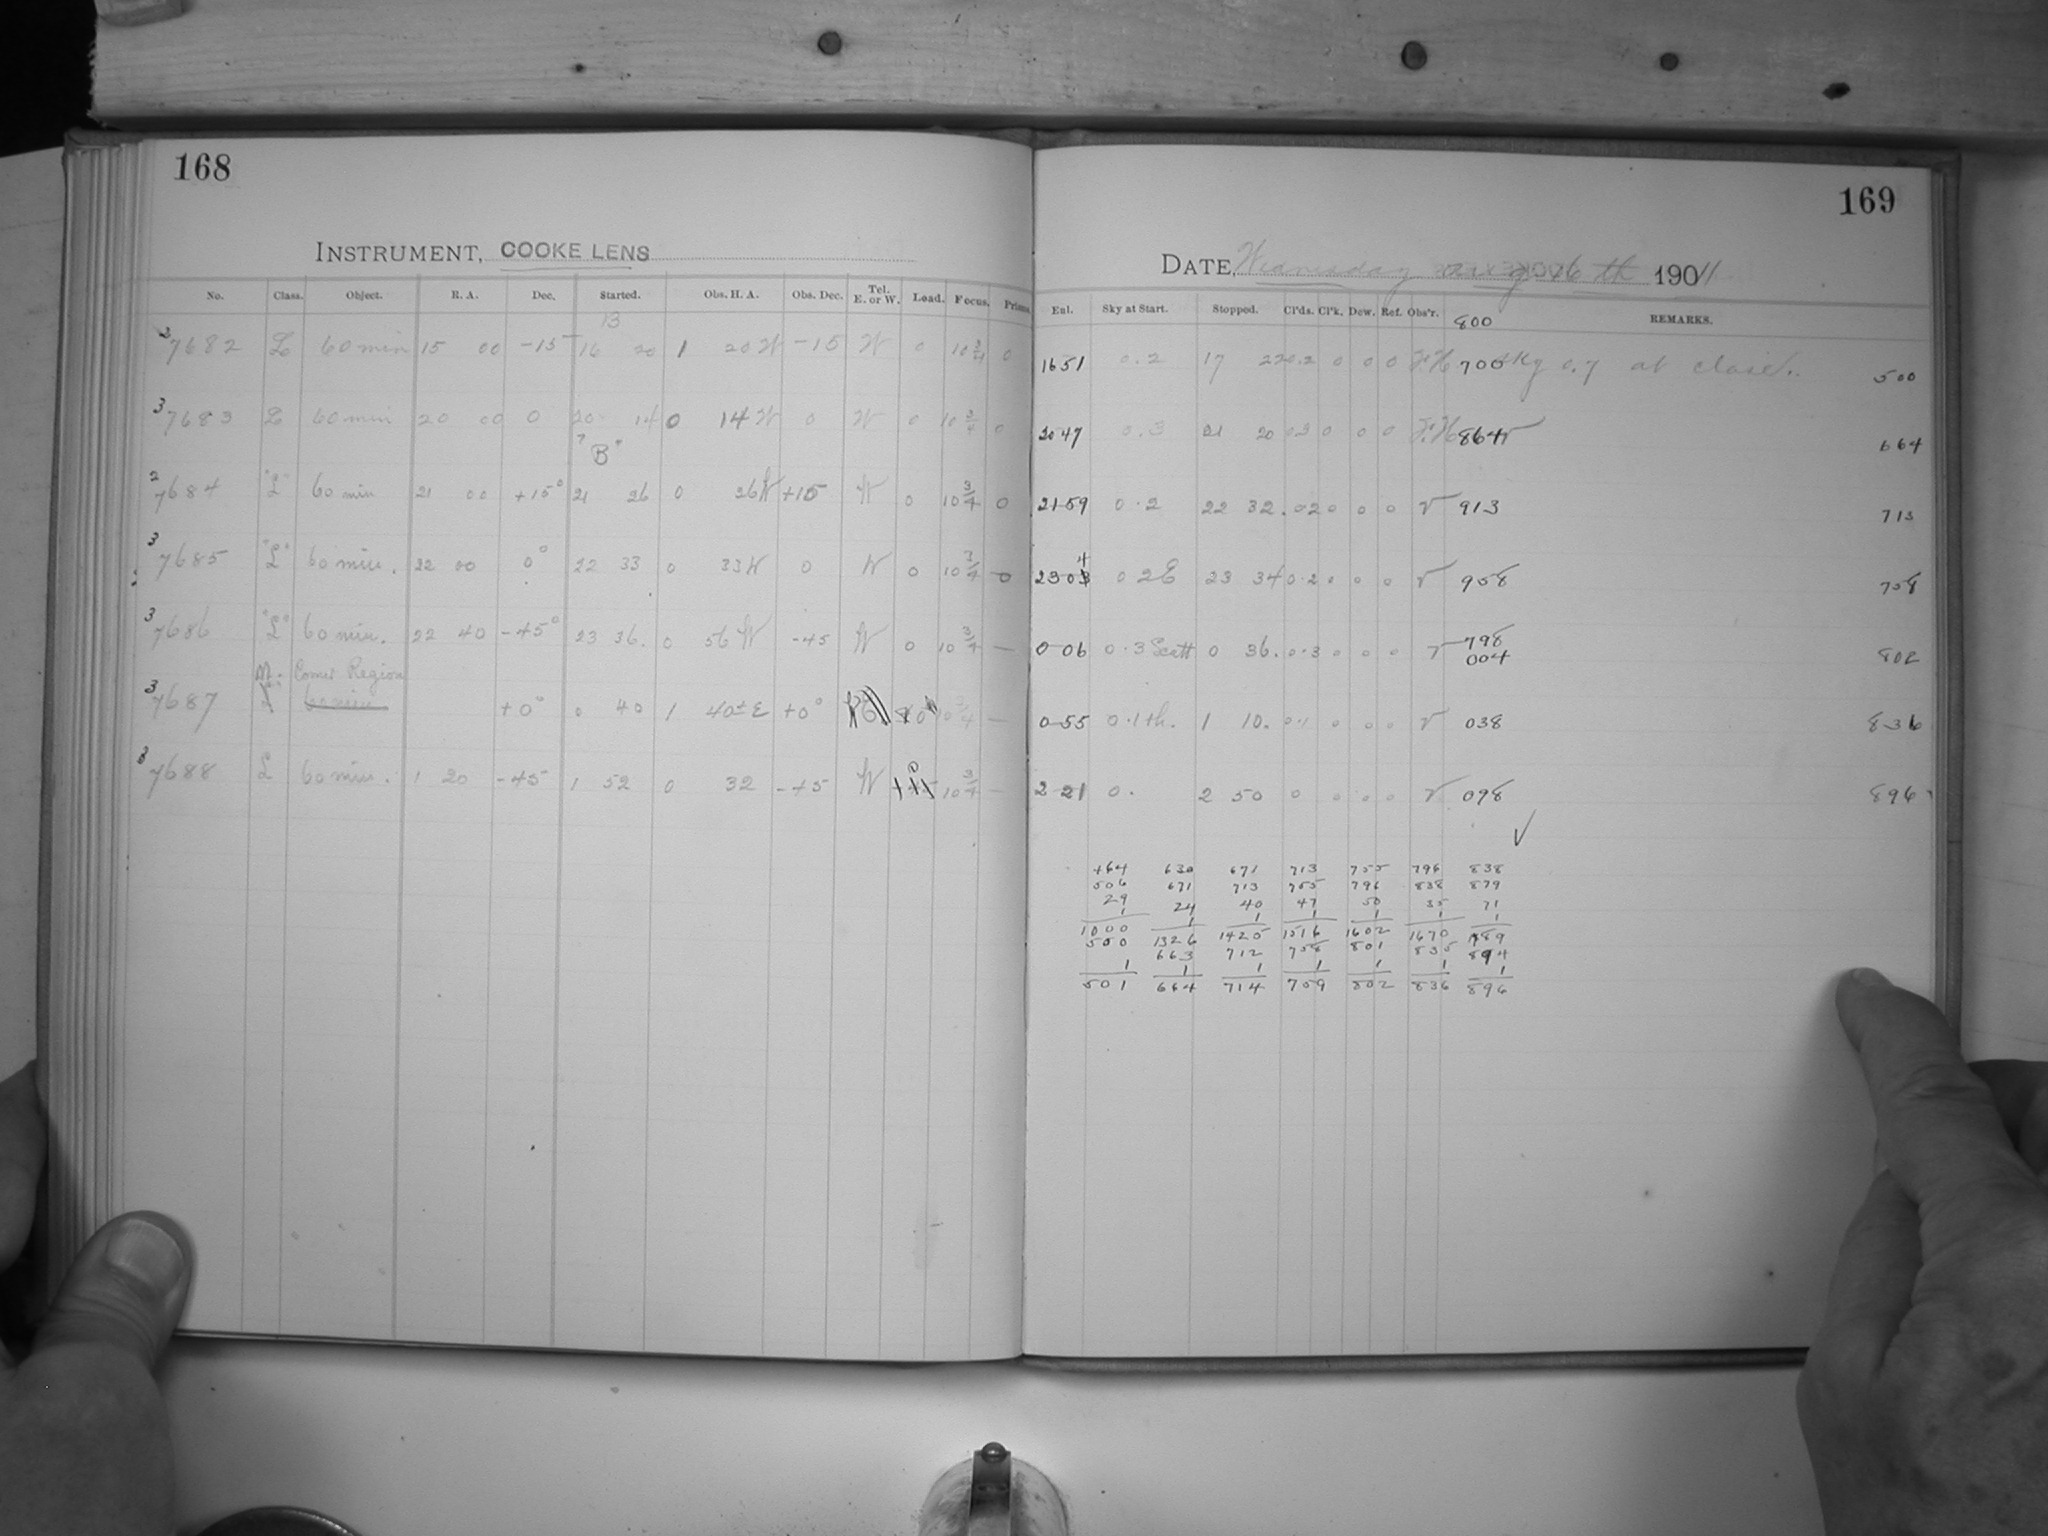 168
INSTRUMENT, COOKE LENS
No. Class. Object. R. A. Dec. Started. Obs. H. A. Obs. Dec. Tel. E. or W. Load. Focus. Prisms.
13
2 7682 L 60 min 15 00 -15 16 20 1 20 W -15 W 0 10 3/4 0
3 7683 L 60 min 20 00 0 20 14 0 14 W 0 W 0 10 3/4 0
"B"
2 7684 "L" 60 min 21 00 +15° 21 26 0 26 W +15 W 0 10 3/4 0
3 7685 "L" 60 min. 22 00 0° 22 33 0 33 W 0 W 0 10 3/4 0
3 7686 "L" 60 min. 22 40 -45° 23 36. 0 56 W -45 W 0 10 3/4 —
Comet Region
3 7687 60 min +0° 0 40 1 40± E +0° 10 3/4 —
3 7688 L 60 min. 1 20 -45 1 52 0 32 -45 W 10 3/4 —
169
DATE, Wednesday Aug 16 th 1901 11
Enl. Sky at Start. Stopped. Cl'ds. Cl'k. Dew. Ref. Obs'r. REMARKS.
800
16 51 0.2 17 22 0.2 0 0 0 F.H 700 sky 0.7 at close. 500
20 47 0.3 21 20 0.3 0 0 0 F.H 864 664
21 59 0.2 22 32 .02 0 0 0 V 913 713
4
23 03 0 2E 23 34 0.2 0 0 0 V 958 758
798
0 06 0.3 Scatt 0 36. 0.3 0 0 0 V 004 802
0 55 0.1 th. 1 10. 0.1 0 0 0 V 038 836
2 21 0. 2 50 0 0 0 0 V 098 896
✓
464 630 671 713 755 796 838
506 671 713 755 796 838 879
29 24 40 47 50 35 71
1 1 1 1 1 1 1
1000 1326 1425 1516 1602 1670 1789
500 663 712 758 801 835 894
1 1 1 1 1 1 1
501 664 714 759 802 836 896